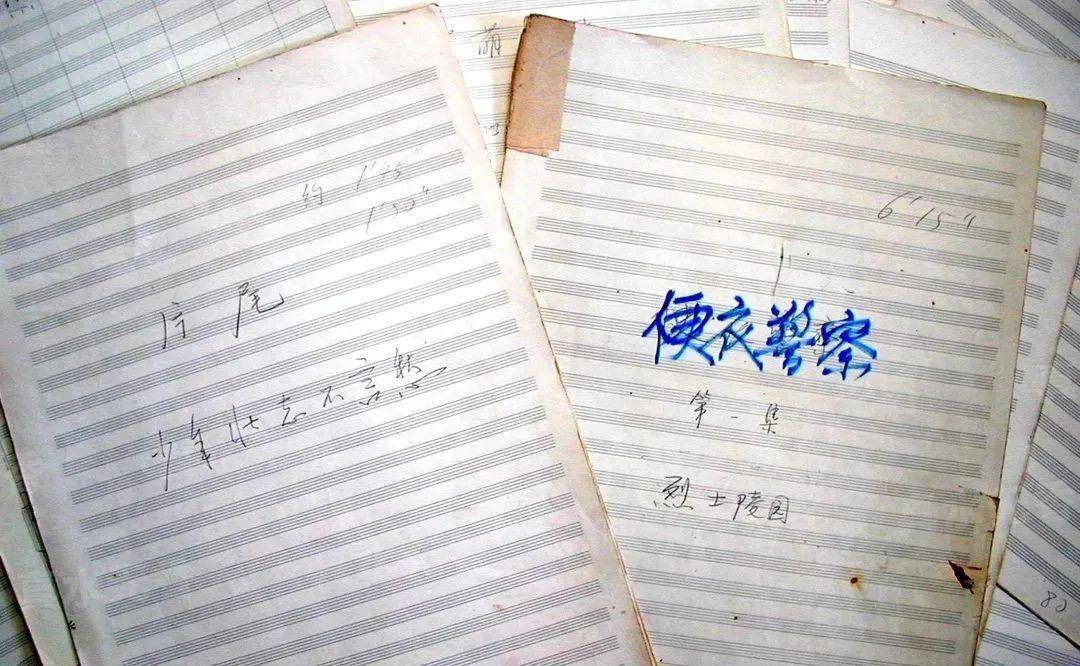 约 1'45"
1'50"
片尾
少年壮志不言愁
萌
6'15"
便衣警察
第一集
烈士陵园
80